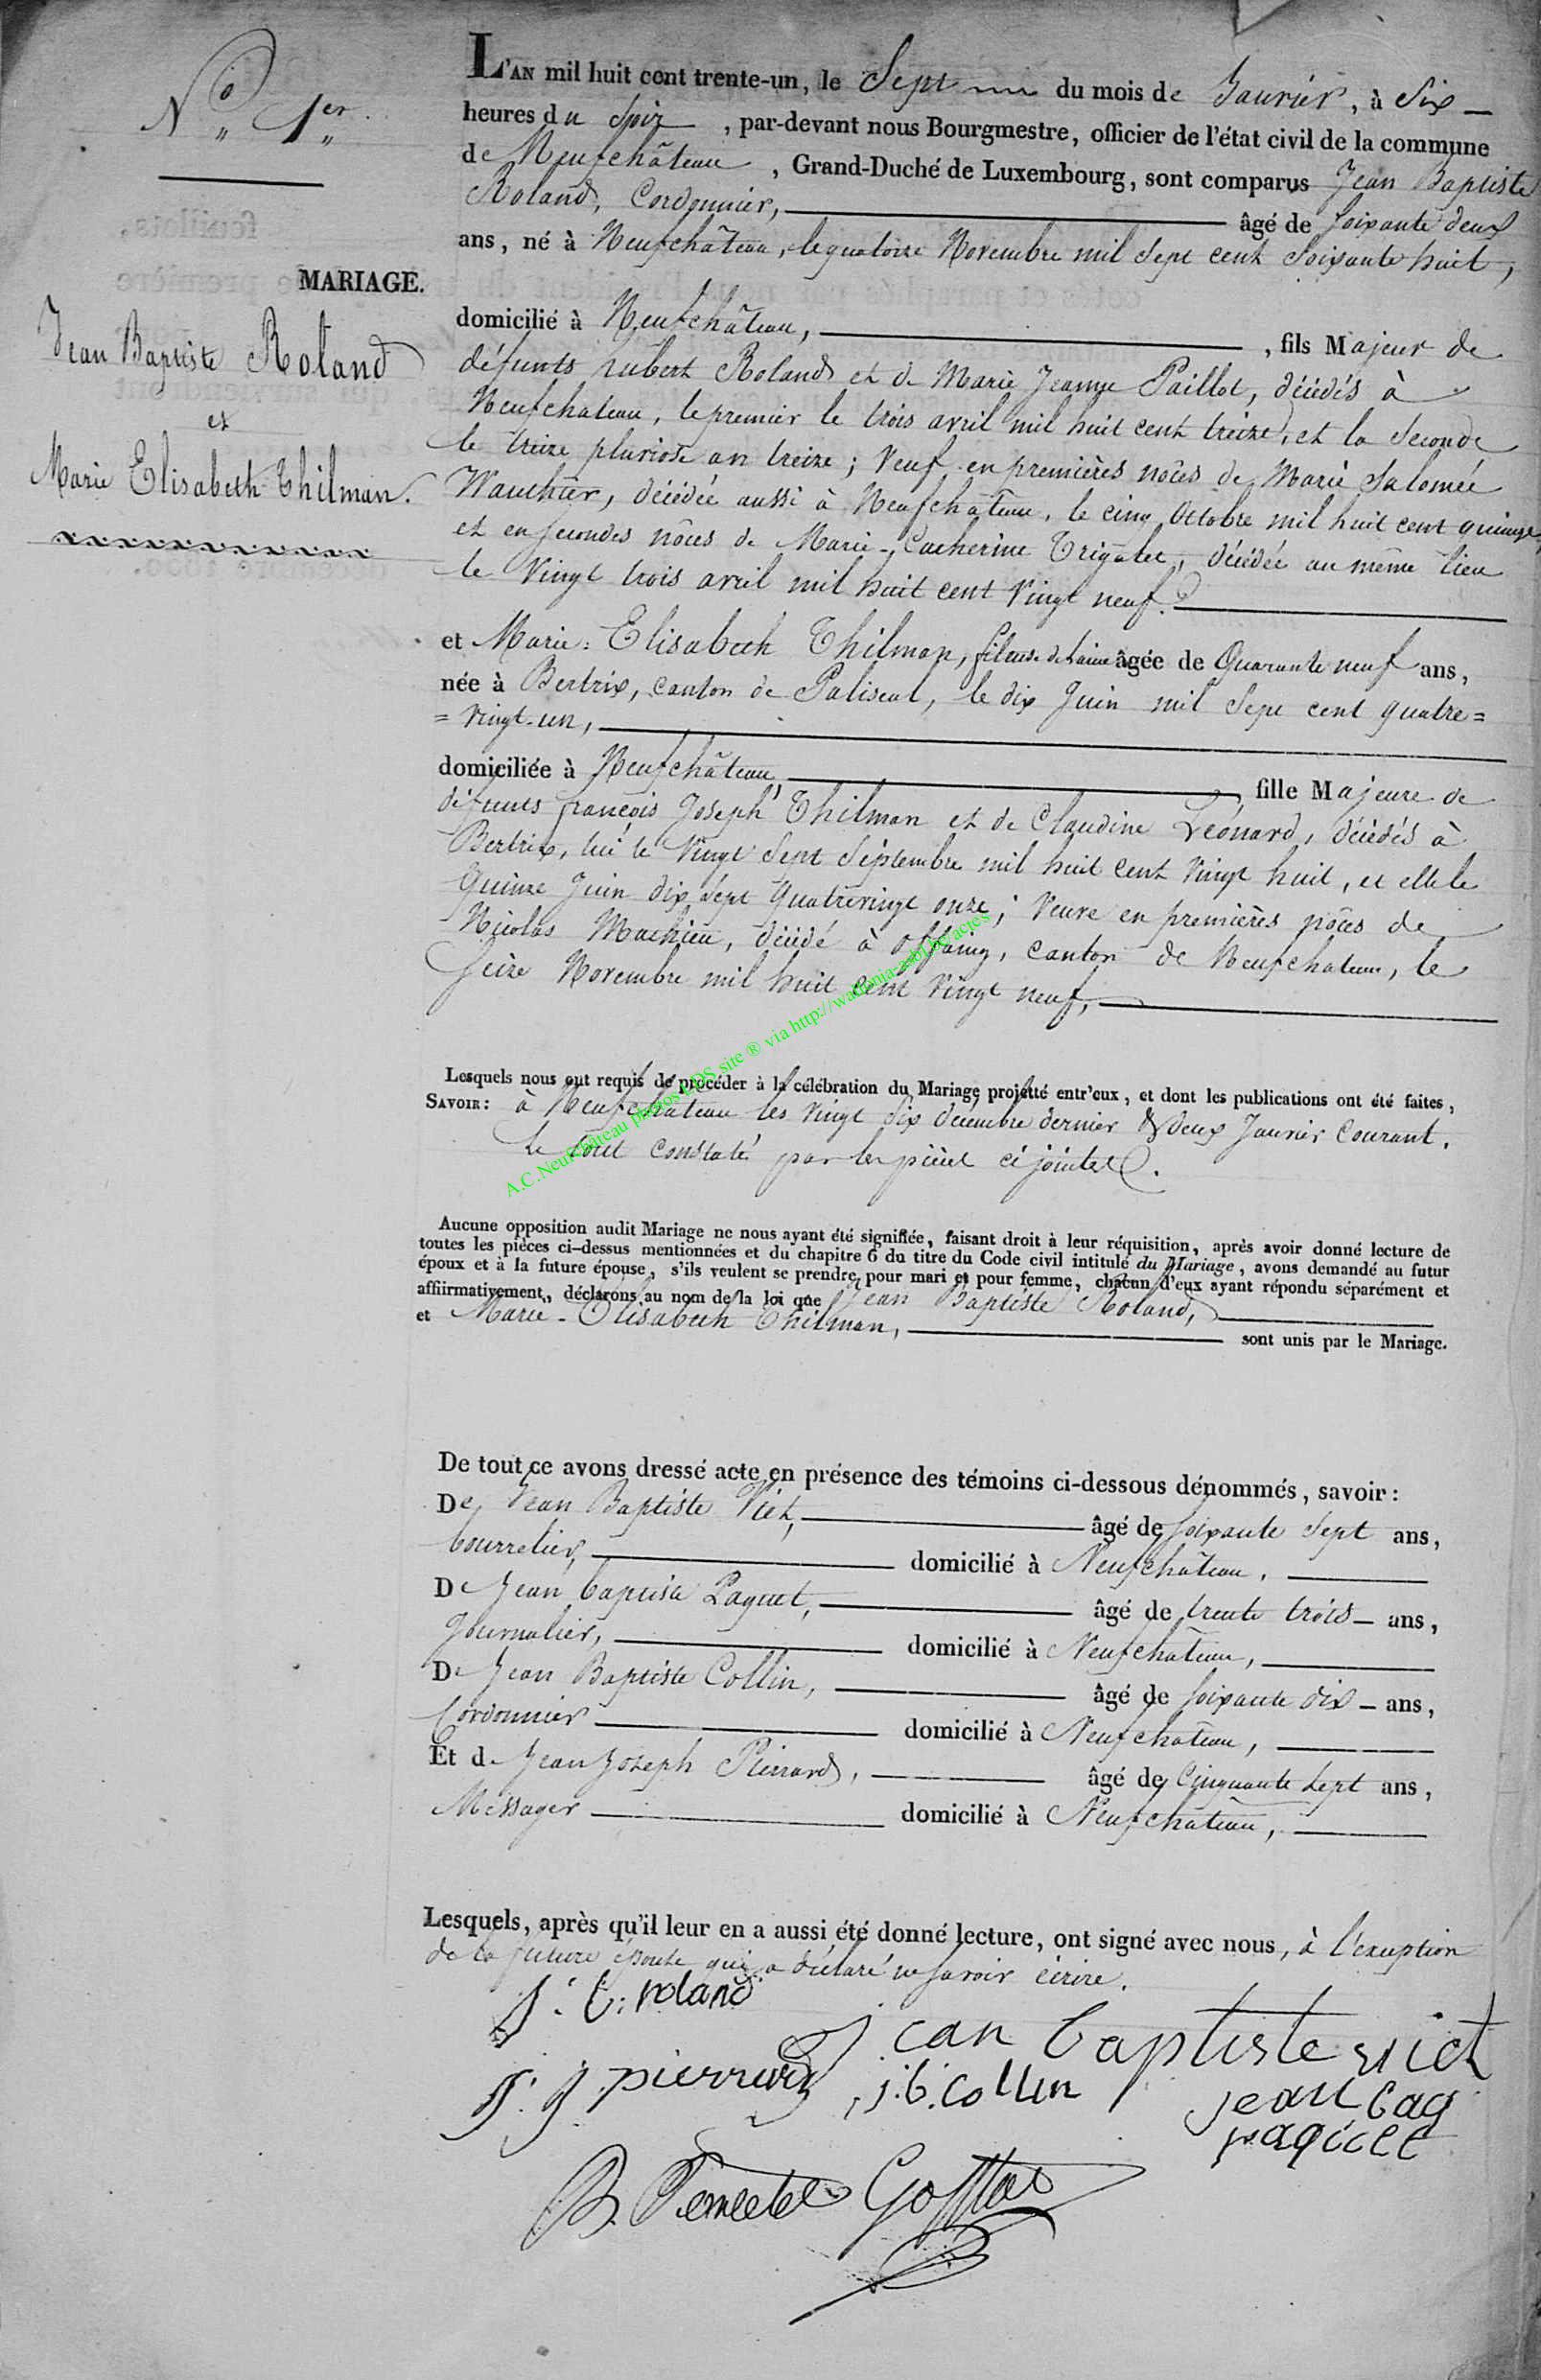 N° 1er
MARIAGE.
Jean Baptiste Roland
et
Marie Elisabeth Thilman.
L'AN mil huit cent trente-un, le Sept du mois de Janvier, à Six
heures du Soir, par-devant nous Bourgmestre, officier de l'état civil de la commune
de Neufchâteau, Grand-Duché de Luxembourg, sont comparus Jean Baptiste
Roland, Cordonnier, âgé de soixante deux
ans, né à Neufchâteau, le quatorze Novembre mil Sept cent Soixante huit,
domicilié à Neufchâteau, fils Majeur de
défunts hubert Roland et de Marie Jeanne Paillot, décédés à
Neufchateau, le premier le trois avril mil huit cent treize, et la Seconde
le treize pluviose an treize; Veuf en premières nôces de Marie Salomée
Wauthier, décédée aussi à Neufchâteau, le cinq Octobre mil huit cent quinze,
et en secondes nôces de Marie-Catherine Trigalet, décédée au même lieu
le Vingt trois avril mil huit cent Vingt neuf.
et Marie-Elisabeth Thilman, fileuse de laine âgée de Quarante neuf ans,
née à Bertrix, canton de Paliseul, le dix Juin mil Sept cent quatre=
= Vingt-un,
domiciliée à Neufchâteau, fille Majeure de
défunts françois Joseph Thilman et de Claudine Léonard, décédés à
Bertrix, lui le Vingt Sept Septembre mil huit Cent Vingt huit, et elle le
Quinze Juin dix Sept Quatrevingt onze; Veuve en premières nôces de
Nicolas Mathieu, décédé à offaing, canton de Neufchateau, le
Seize Novembre mil huit cent Vingt neuf,
Lesquels nous ont requis de procéder à la célébration du Mariage projetté entr'eux, et dont les publications ont été faites,
SAVOIR: à Neufchateau les Vingt Six décembre dernier & deux Janvier Courant.
Le tout constaté par les pièces ci jointes.
A.C.Neufchâteau photos LDS site ® via http://wadania-asbl.be/actes
Aucune opposition audit Mariage ne nous ayant été signifiée, faisant droit à leur réquisition, après avoir donné lecture de
toutes les pièces ci-dessus mentionnées et du chapitre 6 du titre du Code civil intitulé du Mariage, avons demandé au futur
époux et à la future épouse, s'ils veulent se prendre pour mari et pour femme, chacun d'eux ayant répondu séparément et
affiirmativement, déclarons au nom de la loi que Jean Baptiste Roland,
et Marie-Elisabeth Thilman, sont unis par le Mariage.
De tout ce avons dressé acte en présence des témoins ci-dessous dénommés, savoir:
De Jean Baptiste Viet, âgé de soixante Sept ans,
bourrelier, domicilié à Neufchâteau.
De Jean baptiste Paquet, âgé de trente trois ans,
Journalier, domicilié à Neufchâteau,
De Jean Baptiste Collin, âgé de soixante dix ans,
Cordonnier domicilié à Neufchâteau,
Et de Jean Joseph Pierrard, âgé de Cinquante Sept ans,
Messager domicilié à Neufchâteau,
Lesquels, après qu'il leur en a aussi été donné lecture, ont signé avec nous, à l'exception
de la future Epouse qui a déclaré ne savoir écrire.
J. b. roland
jean baptiste viet
J. J. pierrard j.b. collin
jean bag
paquet